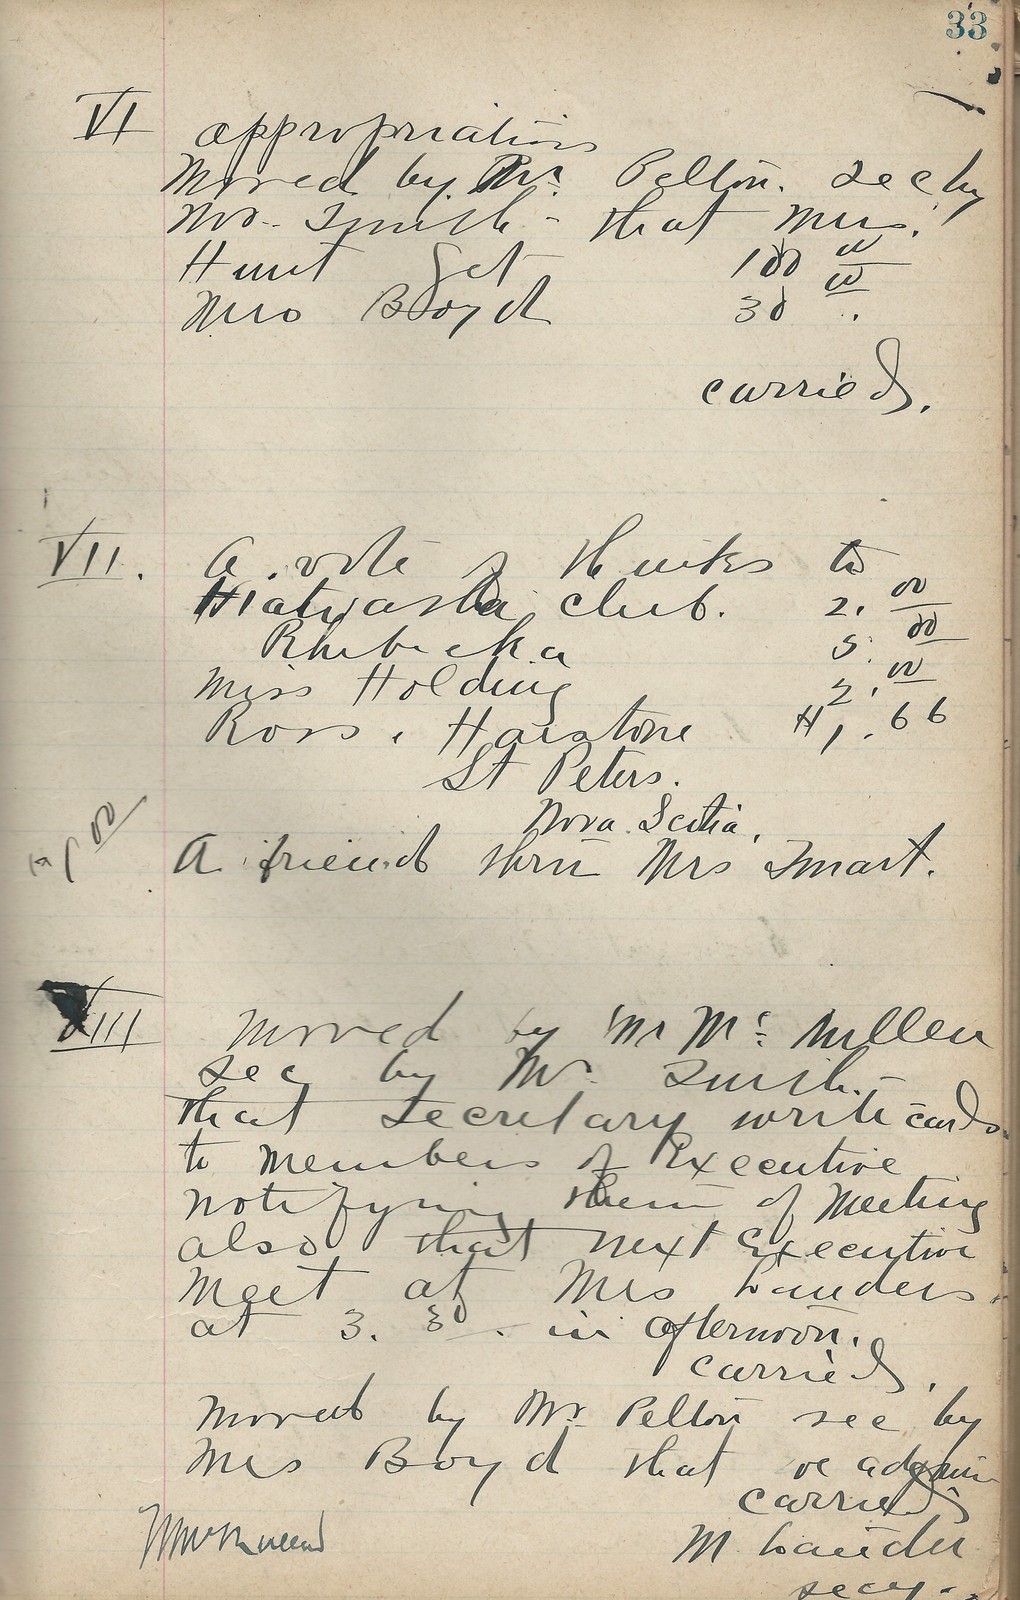 33
VI appropriations
Moved by Mr. Pelton. sec by
Mr. Smith - that Mrs.
Hunt get 100 00
Mrs Boyd 30 00.
carried.
VII. A vote of thanks to
Hiatwasha club. 2. 00
Rhebecka 5. 00
Miss Holding 2. 00
Ross. Haistone 41. 66
St Peters.
Nova Scotia.
00
A friend thru Mrs Smart.
VIII Moved by Mr Mc Millen
sec by Mr. Smith. -
that Secretary write cards
to members of Executive
notifying them of Meeting
also that next Executive
meet at Mrs Landers.
at 3. 30. in afternoon.
carried.
Moved by Mr. Pelton sec by
Mrs Boyd that we adjourn
carried
M. Lander
secy.